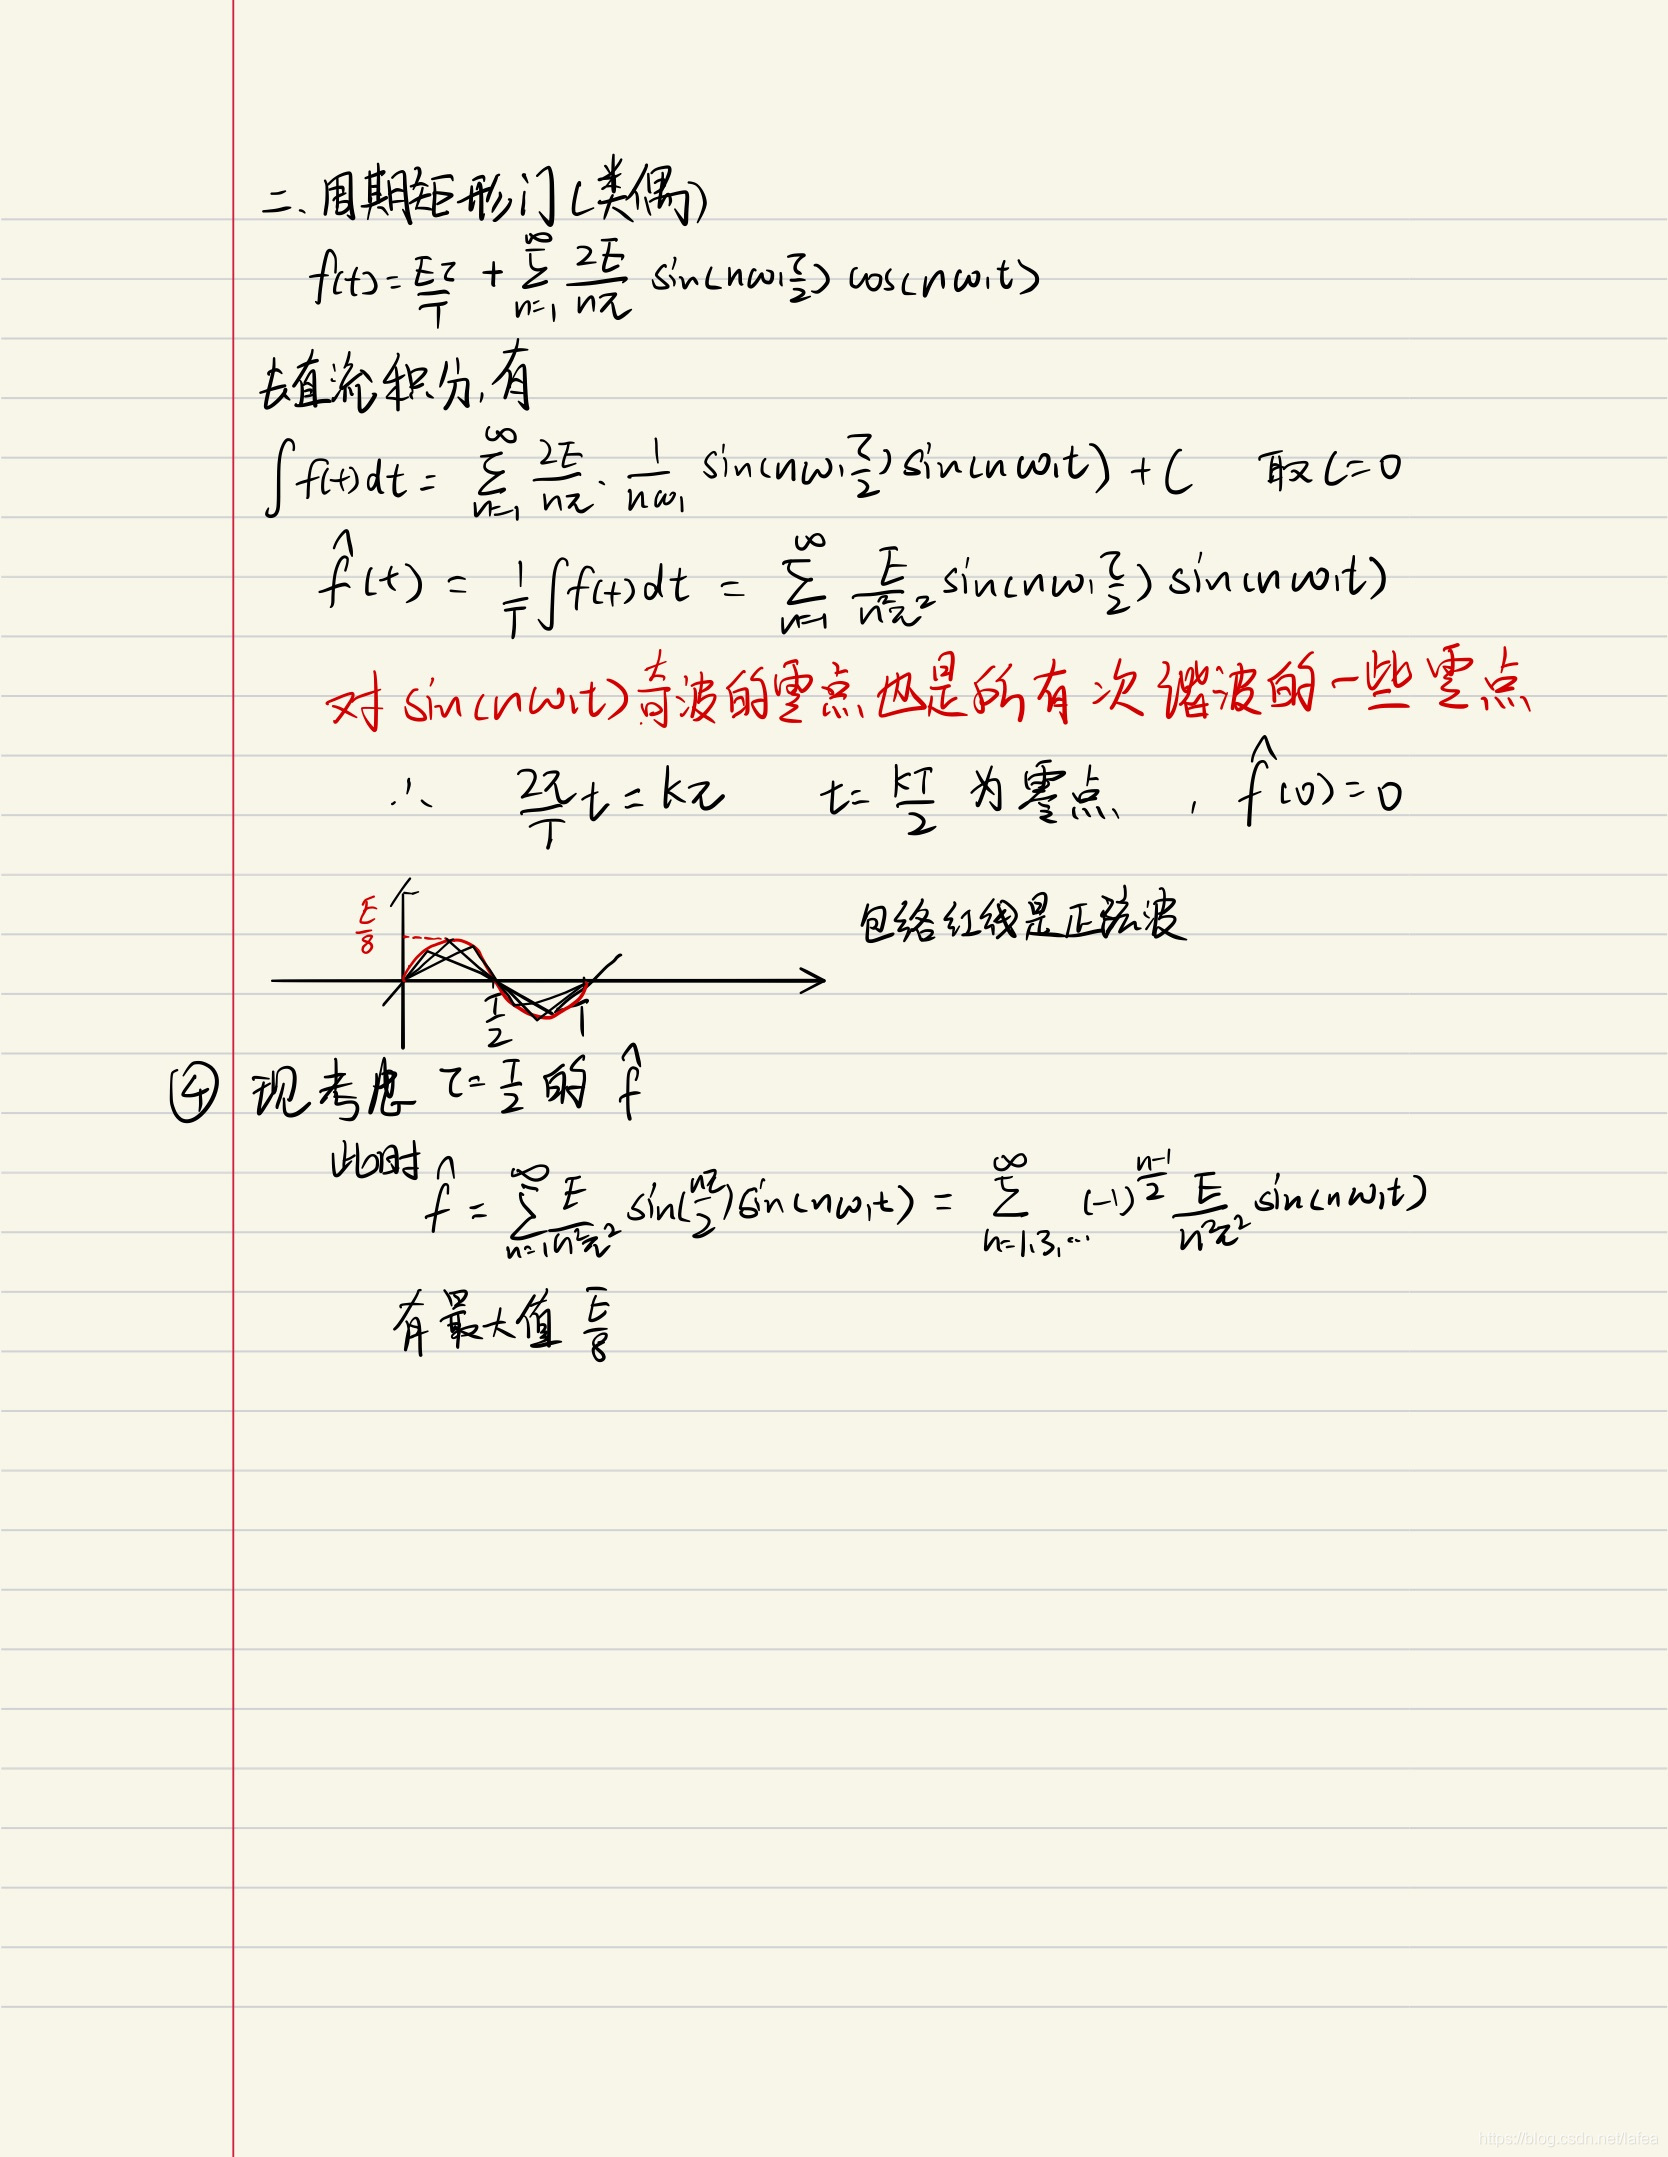 二、周期矩形门(类偶)
f(t) = Eτ/T + ∑_{n=1}^{∞} 2E/nπ sin(nω₁τ/2) cos(nω₁t)
去直流积分,有
∫f(t)dt = ∑_{n=1}^{∞} 2E/nπ · 1/nω₁ sin(nω₁τ/2) sin(nω₁t) + C 取C=0
f̂(t) = 1/T ∫f(t)dt = ∑_{n=1}^{∞} E/n²π² sin(nω₁τ/2) sin(nω₁t)
对sin(nω₁t)奇波的零点也是所有次谐波的一些零点
∴ 2π/T t = kπ t = kT/2 为零点, f̂(0)=0
E/8
包络红线是正弦波
T/2 T
④ 现考虑 τ=T/2 的 f̂
此时 f̂ = ∑_{n=1}^{∞} E/n²π² sin(nπ/2) sin(nω₁t) = ∑_{n=1,3,…}^{∞} (-1)^{(n-1)/2} E/n²π² sin(nω₁t)
有最大值 E/8
https://blog.csdn.net/lafea